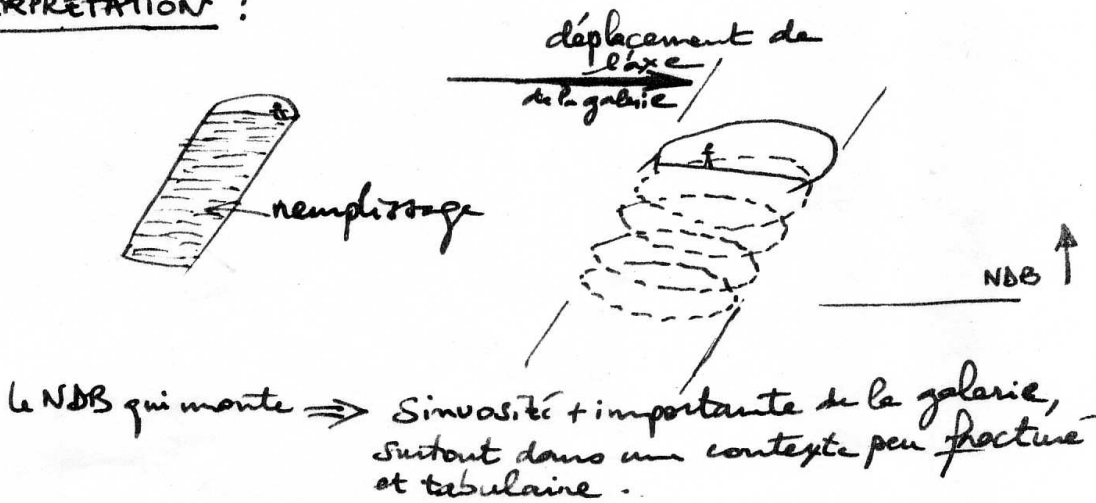 RPRETATION :
déplacement de
l'axe
de la galerie
remplissage
NDB
le NDB qui monte ⇒ Sinuosité + importante de la galerie,
surtout dans un contexte peu fracturé
et tabulaire.